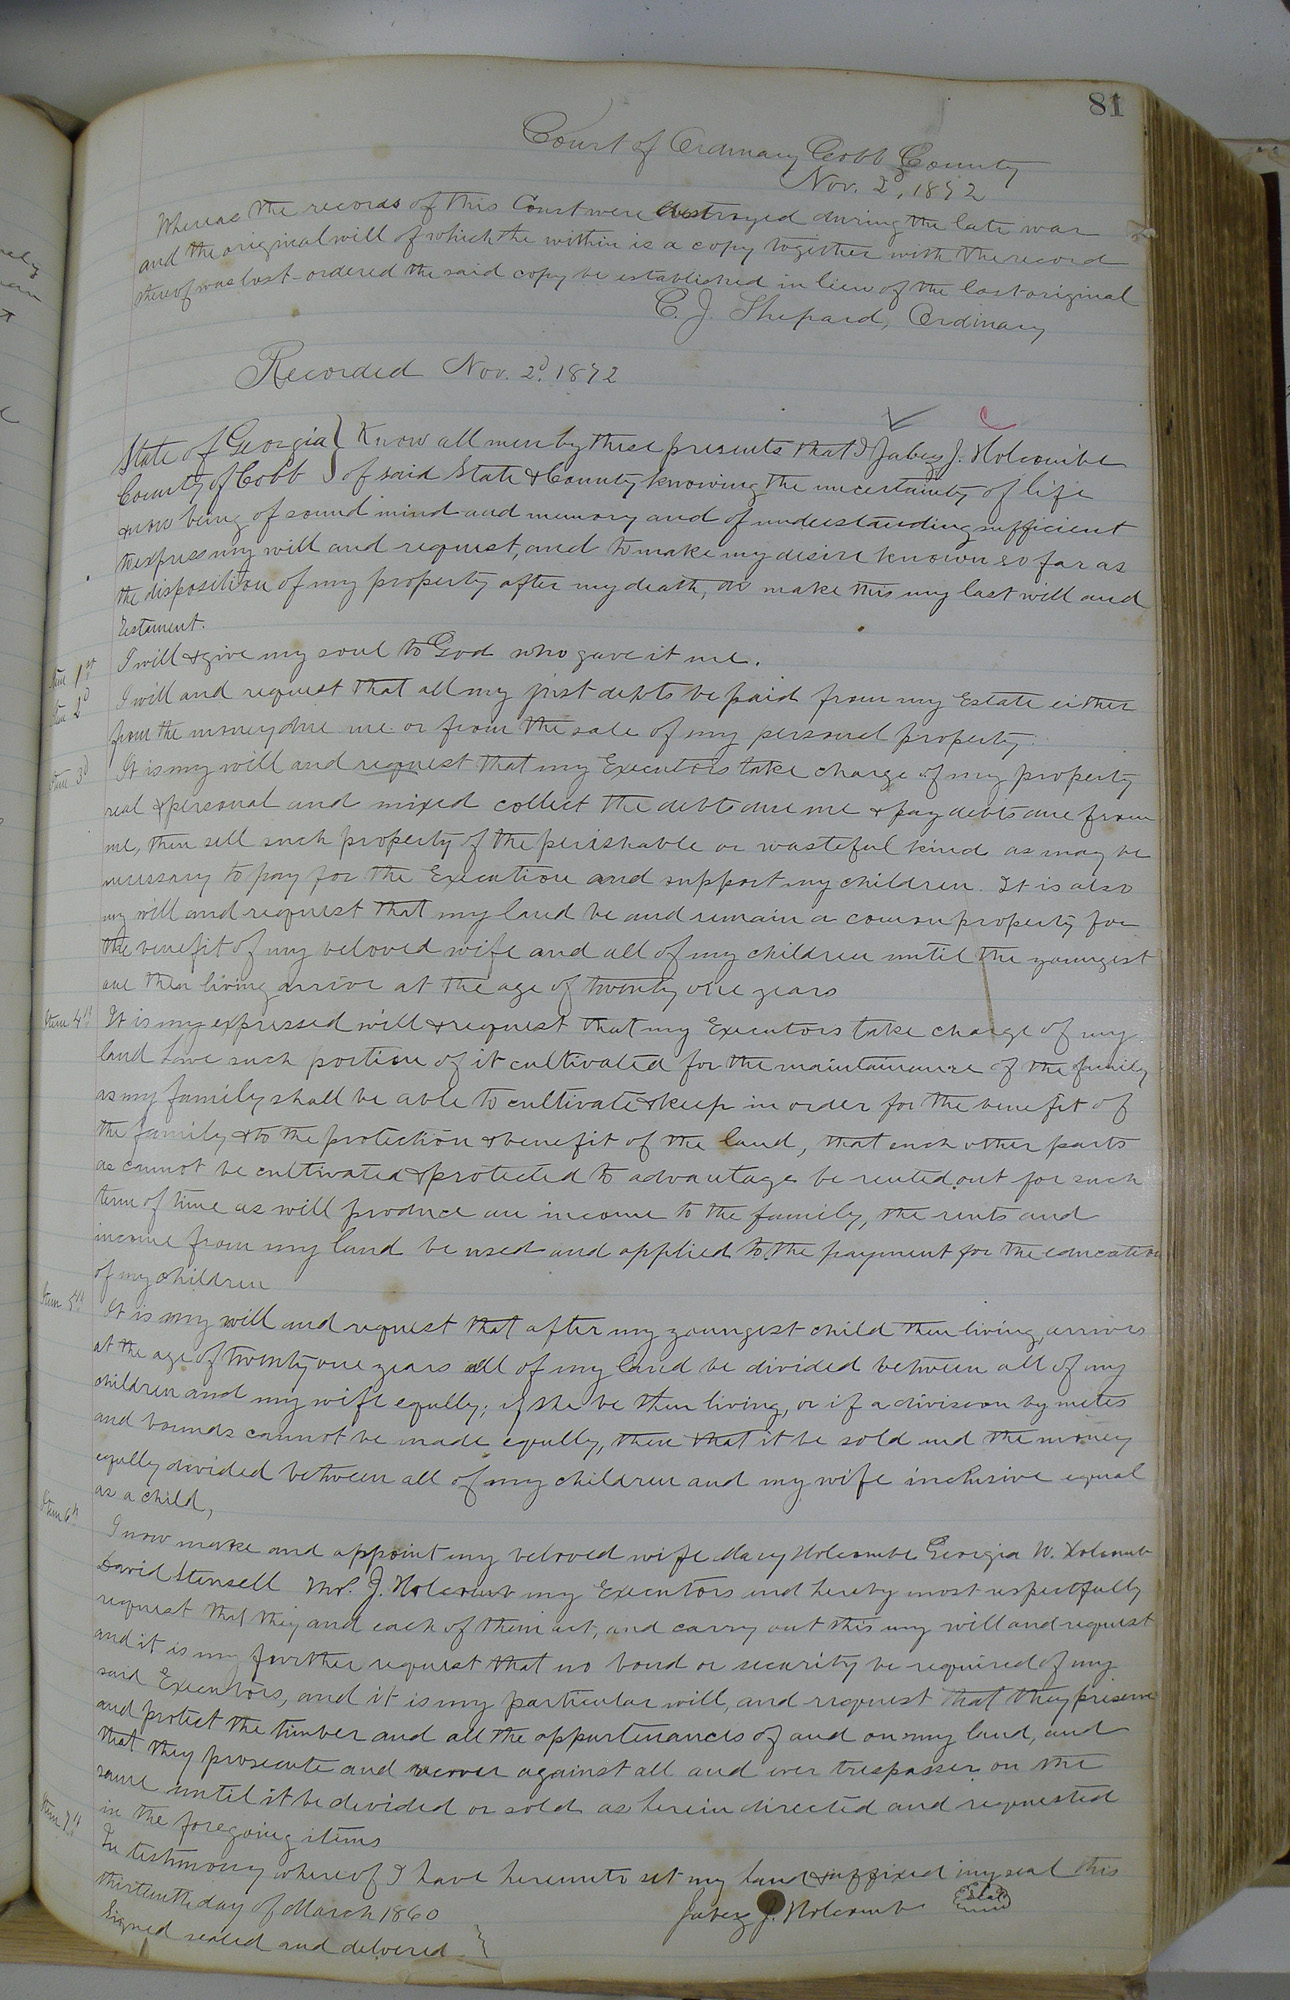 81
Court of Ordinary Cobb County
Nov. 2d, 1872
Whereas the records of this Court were destroyed during the late war
and the original will of which the within is a copy together with the record
thereof was lost ordered the said copy be established in lieu of the lost original
C. J. Shepard, Ordinary
Recorded Nov. 2d, 1872
State of Georgia } Know all men by these presents that I Jabez J. Holcombe
County of Cobb } of said State & County knowing the uncertainty of life
& now being of sound mind and memory and of understanding sufficient
to express my will and request, and to make my desire known so far as
the disposition of my property after my death, do make this my last will and
testament.
Item 1st I will & give my soul to God who gave it me.
Item 2d I will and request that all my just debts be paid from my Estate either
from the money due me or from the sale of my personal property.
Item 3d It is my will and request that my Executors take charge of my property
real & personal and mixed collect the debts due me & pay debts due from
me, then sell such property of the perishable or wasteful kind as may be
necessary to pay for the Execution and support my children. It is also
my will and request that my land be and remain a common property for
the benefit of my beloved wife and all of my children until the youngest
one then living arrive at the age of twenty one years
Item 4th It is my expressed will & request that my Executors take charge of my
land have such portion of it cultivated for the maintainance of the family
as my family shall be able to cultivate & keep in order for the benefit of
the family & to the protection & benefit of the land, that such other parts
as cannot be cultivated & protected to advantage be rented out for such
term of time as will produce an income to the family, the rents and
income from my land be used and applied to the payment for the education
of my children
Item 5th It is my will and request that after my youngest child then living, arrives
at the age of twenty one years all of my land be divided between all of my
children and my wife eqully; if she be then living, or if a division by metes
and bounds cannot be made eqully, then that it be sold and the money
eqully divided between all of my children and my wife inclusive equal
as a child,
Item 6th I now make and appoint my beloved wife Mary Holcombe Georgia W. Holcomb
David Stensell Wm. J. Holcomb my Executors and hereby most respectfully
request that they and each of them act, and carry out this my will and request
and it is my further request that no bond or security be required of my
said Executors, and it is my particular will, and request that they preserve
and protect the timber and all the appurtenances of and on my land, and
that they prosecute and recover against all and ever trespasser on the
same until it be devided or sold as herein directed and requested
in the foregoing items
Item 7th In testimony whereof I have hereunto set my hand & affixed my seal this
thirteenth day of March 1860
Jabez J. Holcomb Seal
Signed sealed and delivered }